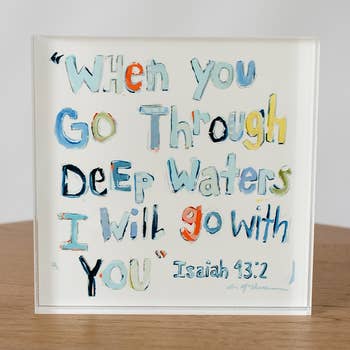 “When you
Go Through
Deep Waters
I Will go with
You” Isaiah 43:2